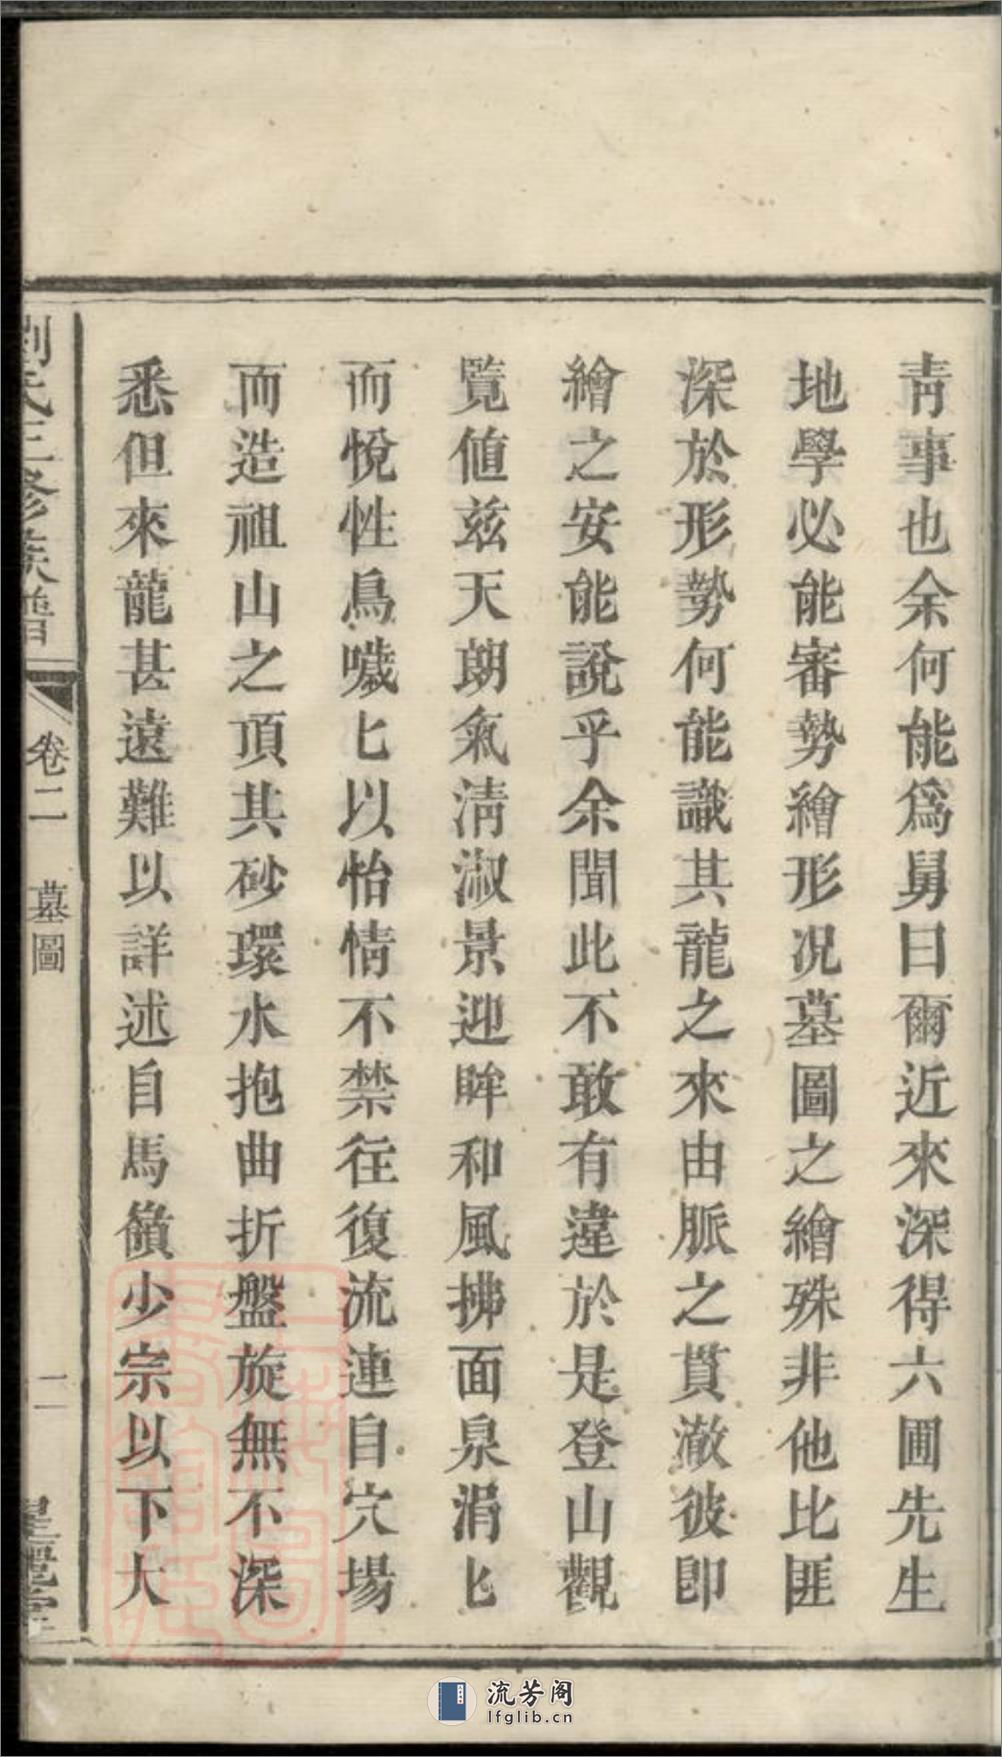 青事也余何能爲舅曰爾近來深得六圃先生
地學必能審勢繪形况墓圖之繪殊非他比匪
深於形勢何能識其龍之來由脈之貫澈彼卽
繪之安能說乎余聞此不敢有違於是登山觀
覽値兹天朗氣淸淑景迎眸和風拂面泉涓匕
而悅性鳥噦匕以怡情不禁徃復流連自穴塲
而造祖山之頂其砂環水抱曲折盤旋無不深
悉但來龍甚遠難以詳述自馬鑧少宗以下大
劉氏三修族譜
卷二
墓圖
二
流芳阁
lfglib.cn